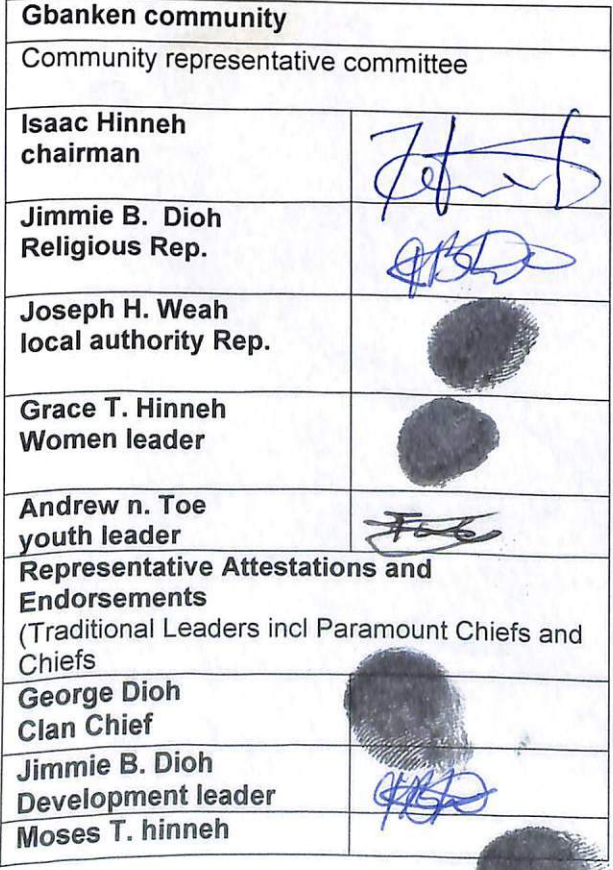 Gbanken community
Community representative committee
Isaac Hinneh
chairman
Jimmie B. Dioh
Religious Rep.
Joseph H. Weah
local authority Rep.
Grace T. Hinneh
Women leader
Andrew n. Toe
youth leader
Representative Attestations and
Endorsements
(Traditional Leaders incl Paramount Chiefs and
Chiefs
George Dioh
Clan Chief
Jimmie B. Dioh
Development leader
Moses T. hinneh